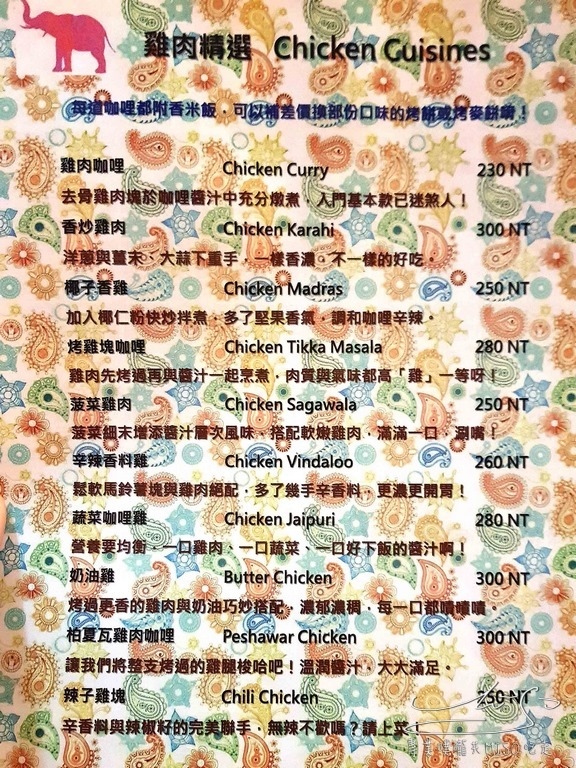 雞肉精選 Chicken Cuisines
每道咖哩都附香米飯，可以補差價換部份口味的烤餅或烤麥餅唷！
雞肉咖哩 Chicken Curry 230 NT
去骨雞肉塊於咖哩醬汁中充分燉煮，入門基本款已迷煞人！
香炒雞肉 Chicken Karahi 300 NT
洋蔥與薑末、大蒜下重手，一樣香濃，不一樣的好吃。
椰子香雞 Chicken Madras 250 NT
加入椰仁粉快炒拌煮，多了堅果香氣，調和咖哩辛辣。
烤雞塊咖哩 Chicken Tikka Masala 280 NT
雞肉先烤過再與醬汁一起烹煮，肉質與氣味都高「雞」一等呀！
菠菜雞肉 Chicken Sagawala 250 NT
菠菜細末增添醬汁層次風味，搭配軟嫩雞肉，滿滿一口，涮嘴！
辛辣香料雞 Chicken Vindaloo 260 NT
鬆軟馬鈴薯塊與雞肉絕配，多了幾手辛香料，更濃更開胃！
蔬菜咖哩雞 Chicken Jaipuri 280 NT
營養要均衡，一口雞肉、一口蔬菜、一口好下飯的醬汁啊！
奶油雞 Butter Chicken 300 NT
烤過更香的雞肉與奶油巧妙搭配，濃郁濃稠，每一口都嘖嘖嘖。
柏夏瓦雞肉咖哩 Peshawar Chicken 300 NT
讓我們將整支烤過的雞腿梭哈吧！溫潤醬汁，大大滿足。
辣子雞塊 Chili Chicken 250 NT
辛香料與辣椒籽的完美聯手，無辣不歡嗎？請上菜